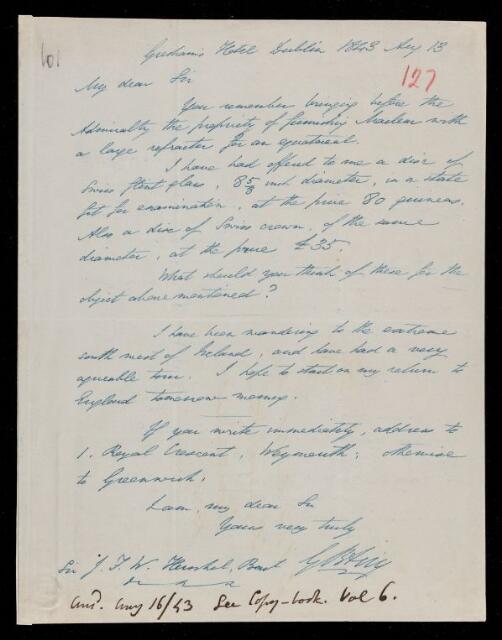 101
Gresham's Hotel Dublin 1843 Aug 13
127
My dear Sir
You remember bringing before the
Admiralty the propriety of furnishing Maclear with
a large refractor for an equatoreal.
I have had offered to me a disc of
Swiss flint glass, 8 5/8 inch diameter, in a state
fit for examination, at the price 80 guineas.
Also a disc of Swiss crown, of the same
diameter, at the price £35.
What should you think of these for the
object above mentioned?
I have been wandering to the extreme
south west of Ireland, and have had a very
agreeable tour. I hope to start on my return to
England tomorrow morning.
If you write immediately, address to
1. Royal Crescent, Weymouth; otherwise
to Greenwich.
I am, my dear Sir
Yours very truly
Sir J. F. W. Herschel, Bart G B Airy
Ansd. Aug 16/43 See Copy-book. Vol 6.